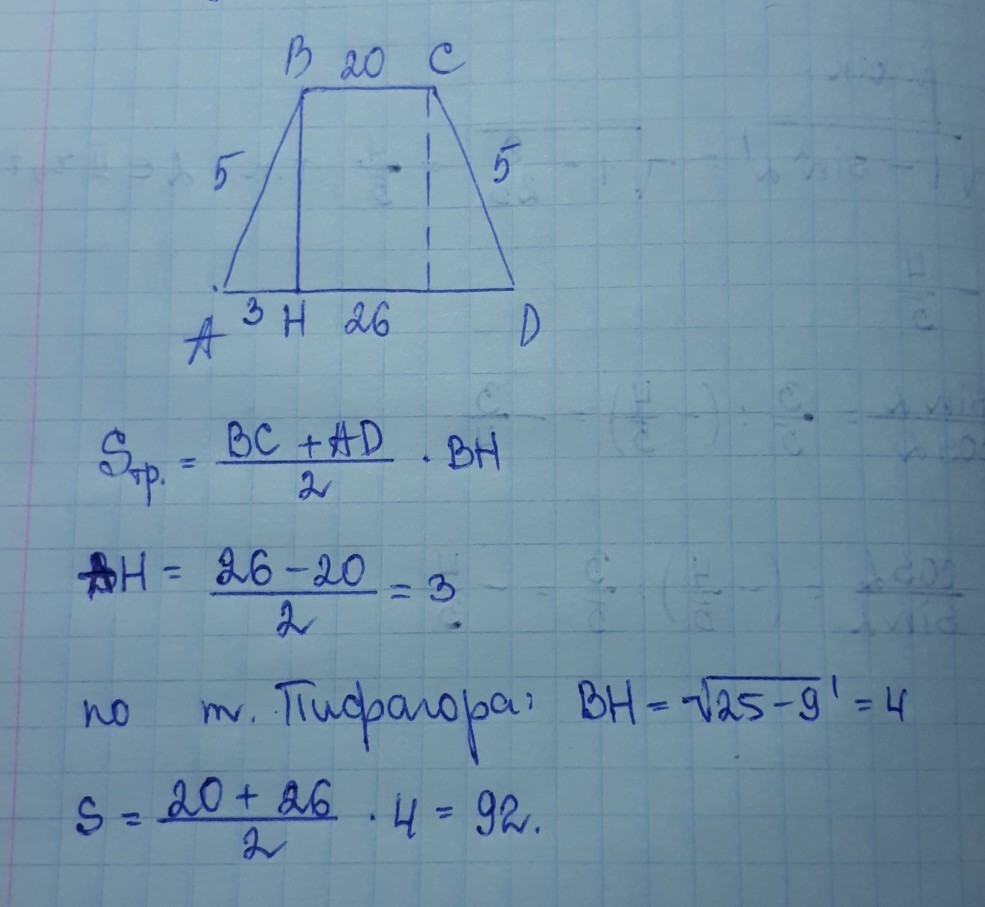 B 20 C
5 5
A 3 H 26 D
Sтр. = (BC + AD)/2 · BH
AH = (26 - 20)/2 = 3
по т. Пифагора: BH = √25 - 9 = 4
S = (20 + 26)/2 · 4 = 92.